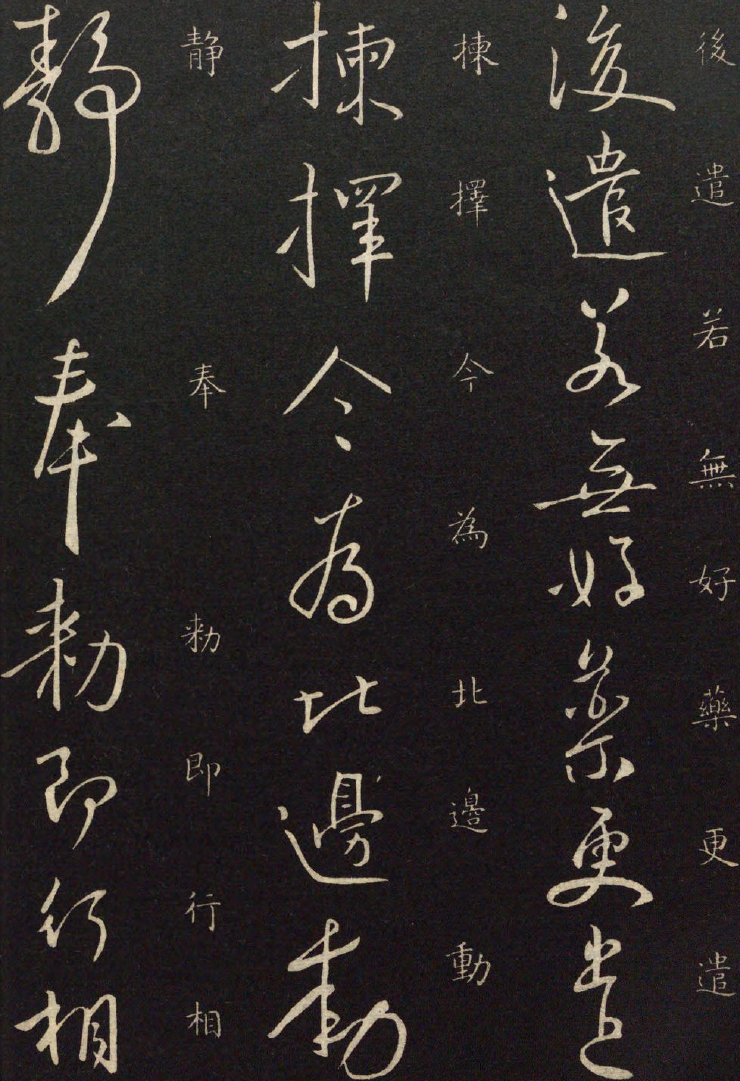 後遣若無好藥更遣
後遣若無好藥更遣
揀擇今為北邊動
揀擇今為北邊動
静奉勑即行相
静奉勑即行相